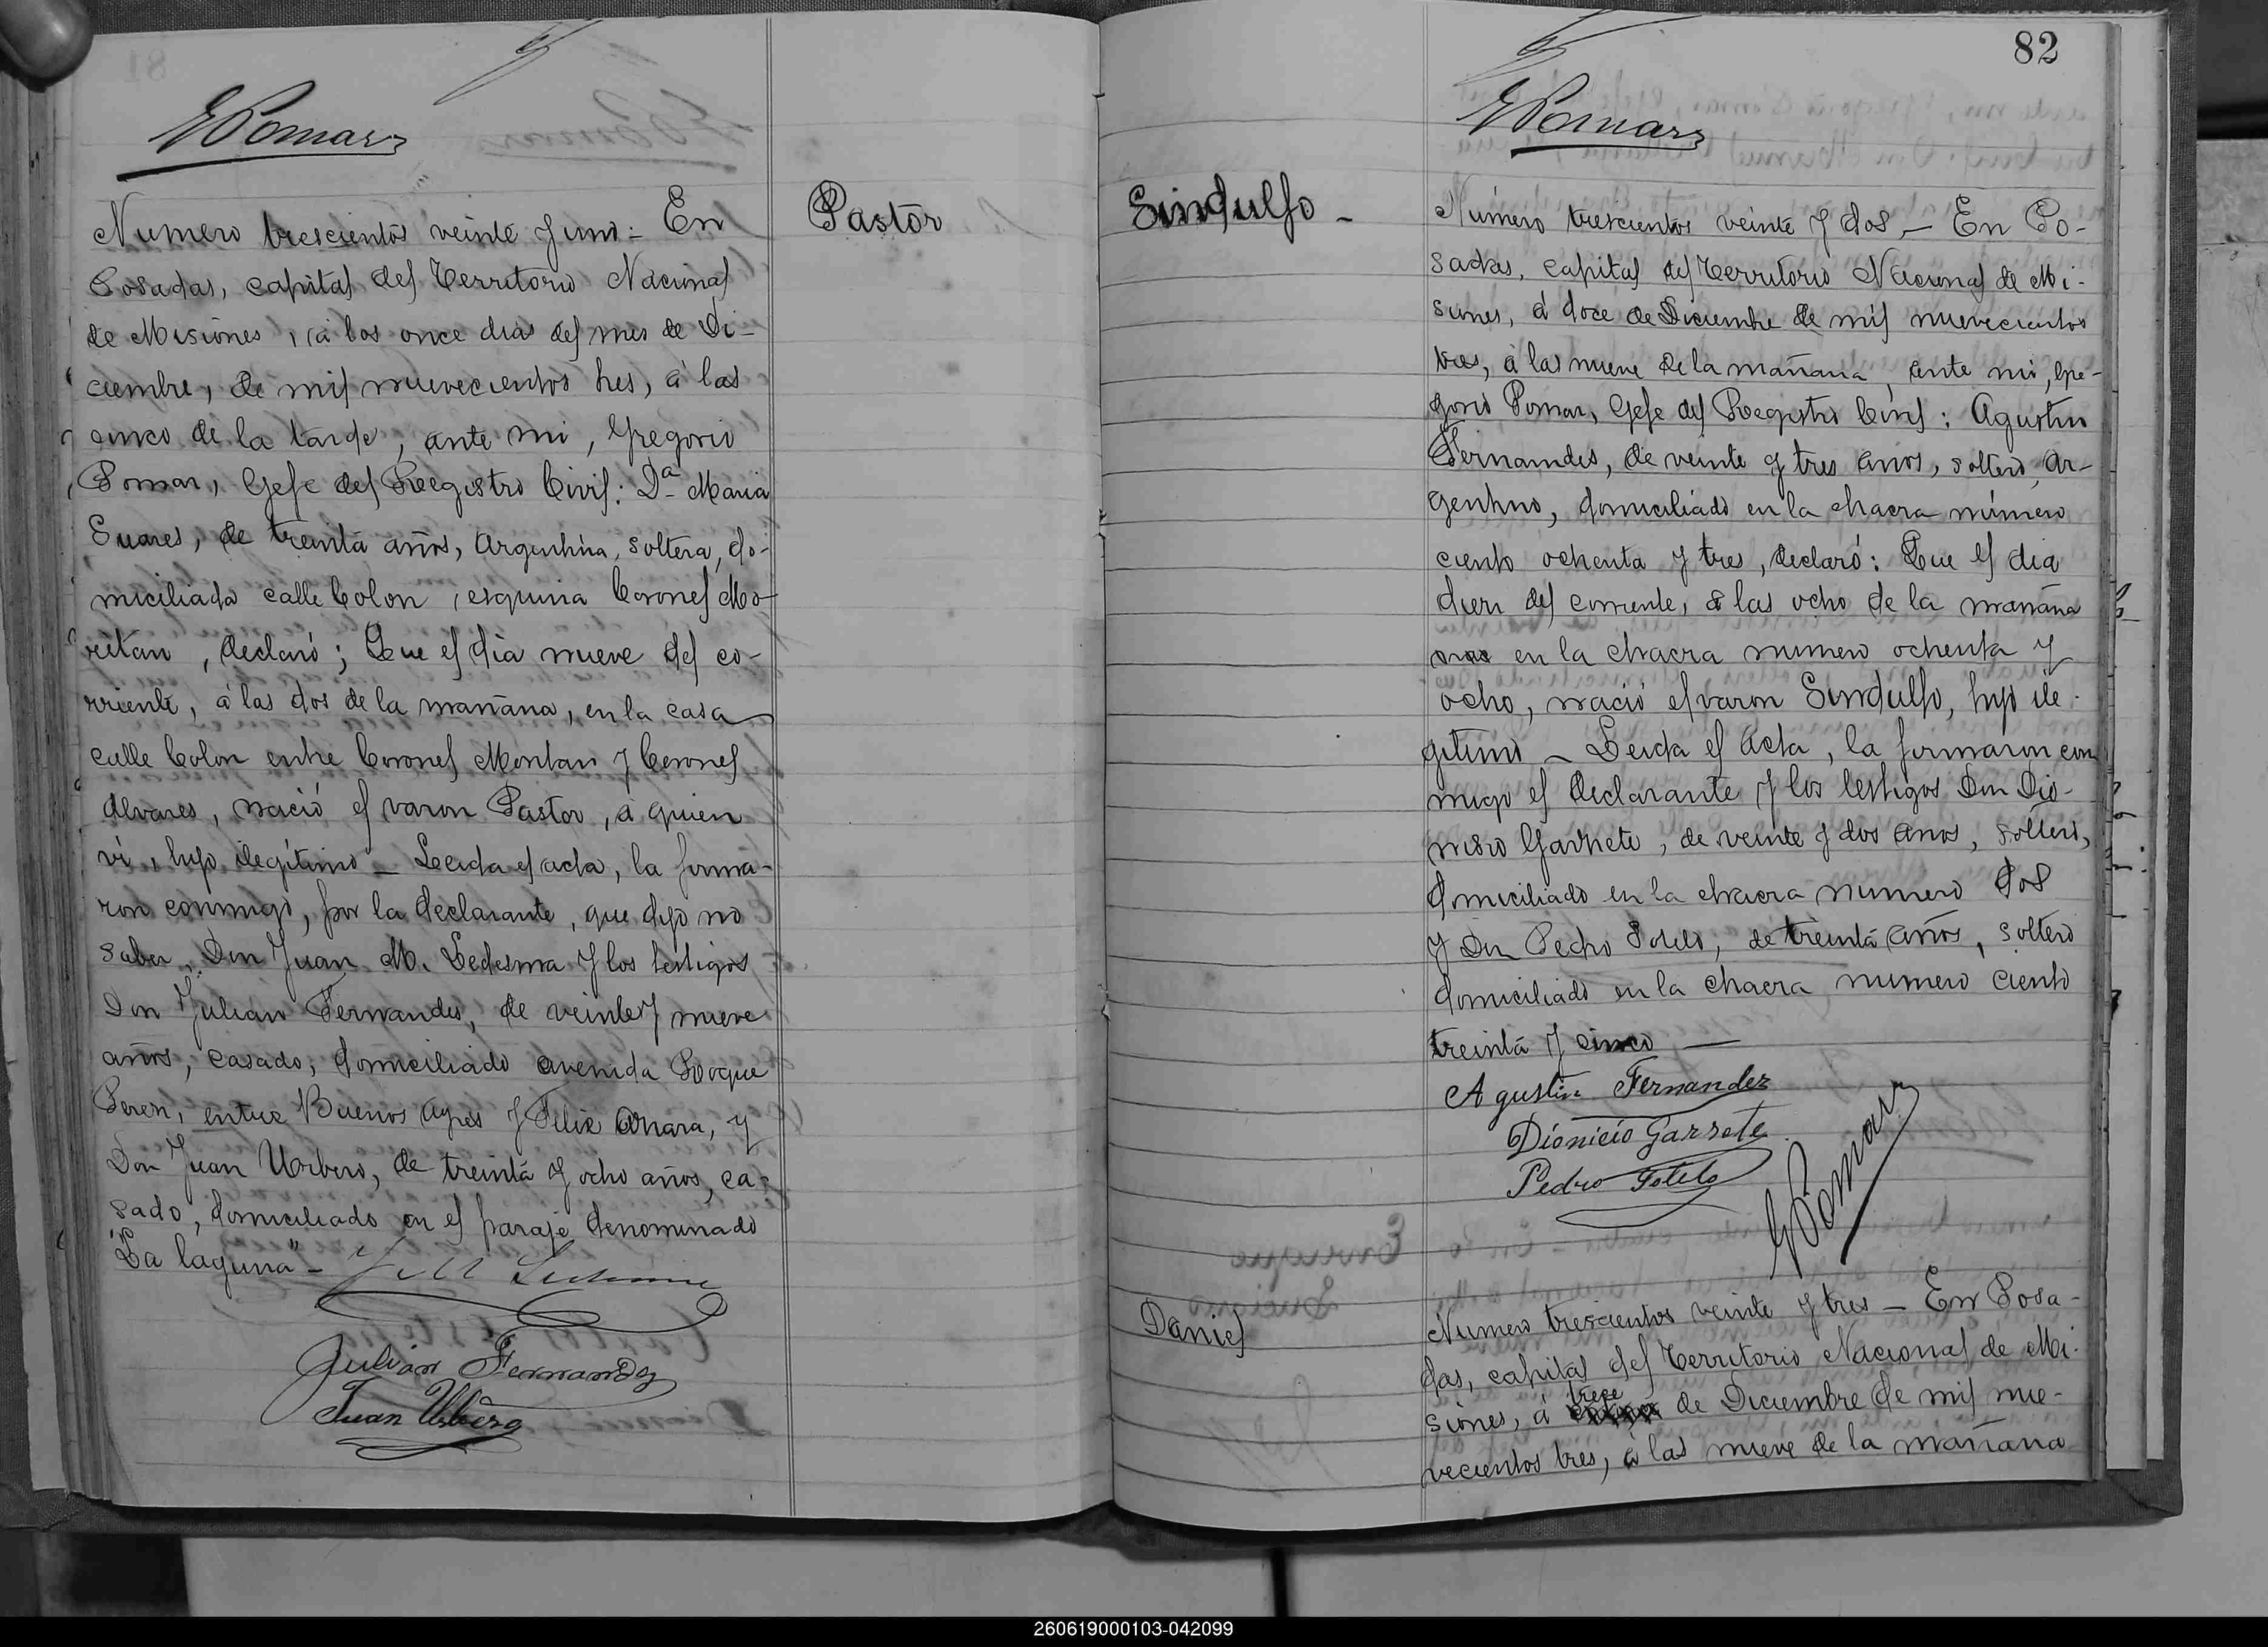 G Pomar
Numero trescientos veinte y uno: En
Posadas, capital del Territorio Nacional
de Misiones, á los once dias del mes de Di-
ciembre, de mil nuevecientos tres, á las
cinco de la tarde, ante mi, Gregorio
Pomar, Gefe del Registro Civil: Da Maria
Suares, de treinta años, Argentina, soltera, do-
miciliada calle Colon, esquina Coronel Mo-
ritan, declaró; Que el dia nueve del co-
rriente, á las dos de la mañana, en la casa
calle Colon entre Coronel Moritan y Coronel
Alvares, nació el varon Pastor, á quien
vi, hijo ilegitimo _ Leida el acta, la firma-
ron conmigo, por la declarante, que dijo no
saber, Don Juan M. Ledesma y los testigos
Don Julian Fernandes, de veinte y nueve
años, casado, domiciliado avenida Roque
Peres, entre Buenos Ayres y Felix Azara, y
Don Juan Urbero, de treinta y ocho años, ca-
sado, domiciliado en el paraje denominado
"La laguna" - J M Ledesma
Julian Fernandez
Juan Urbero
Pastor
82
G Pomar
Sindulfo -
Número trescientos veinte y dos, - En Po-
sadas, capital del Territorio Nacional de Mi-
siones, á doce de Diciembre de mil nuevecientos
tres, á las nueve de la mañana, ante mi, Gre-
gorio Pomar, Gefe del Registro Civil: Agustin
Fernandes, de veinte y tres años, soltero, Ar-
gentino, domiciliado en la chacra número
ciento ochenta y tres, declaró: Que el dia
diez del corriente, á las ocho de la mañana
en la chacra numero ochenta y
ocho, nació el varon Sindulfo, hijo ile-
gitimo - Leida el acta, la firmaron con
migo el declarante y los testigos Don Dio-
nisio Garrete, de veinte y dos años, soltero,
domiciliado en la chacra numero dos
y Don Pedro Sotelo, de treinta años, soltero
domiciliado en la chacra numero ciento
treinta y cinco —
Agustin Fernandez
Dionicio Garrete
Pedro Sotelo
G Pomar
Daniel
Numero trescientos veinte y tres - En Posa-
das, capital del Territorio Nacional de Mi-
siones, á trece de Diciembre de mil nue-
vecientos tres, á las nueve de la mañana
260619000103-042099